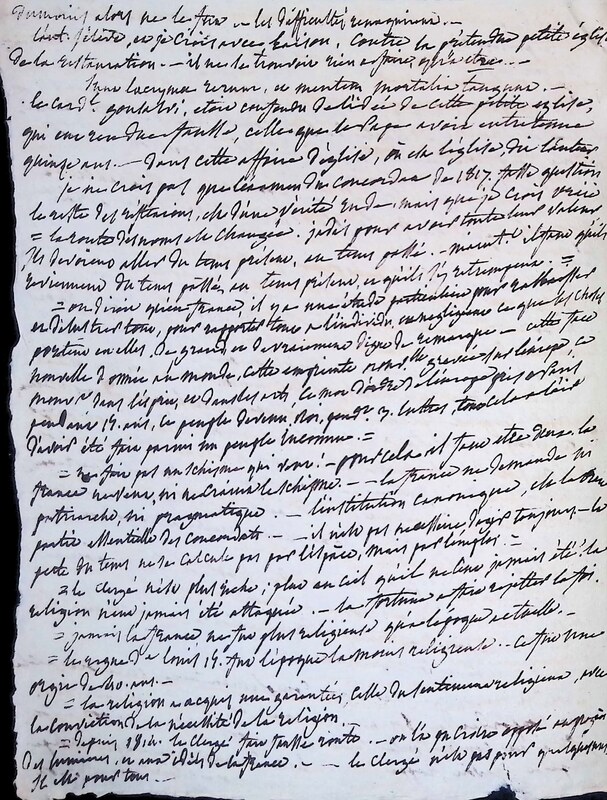 du moins alors ne le fut. – les difficultés
tout s'élève, et je crois avec raison, contre la prétendue petite église
de la restauration. – il ne se trouvoit rien
Sunt lacrymae rerum, et mentem mortalia tangunt. –
le card. de l'idée de cette petite église,
fausse, celle que le Pape avoit entretenue
quinze ans. – dans cette affaire d'église, où est l'église,
je ne crois pas que l'examen du concordat de 1817. fasse question
le reste des est d'une vérité mais que je crois
= la route des noms est changée. jadis pour avoir toute leur valeur
ils devoient aller du tems présent, au tems passé. – maintt. il faut qu'ils
reviennent du tems passé, au tems présent, et qu'ils s'y retrempent. =
= on diroit qu'en france il y a une étude particulière pour rabaisser
et délustrer tout, pour rapporter tout à l'individu, en négligeant ce que les choses
portent en elles de grand et de vraiment digne de remarque – cette face
nouvelle donnée au monde, cette empreinte gravée sur l'europe, ce
mouvt. dans l'esprit, et dans les arts, ce mot d'ordre de l'europe pris à Paris,
pendant 14. ans, ce peuple devenu Roi, luttes, tout cela a l'air
d'avoir été fait parmi un peuple inconnu. =
= ne fait pas un schisme qui veut. – pour cela il faut être deux. la
france ne veut, ni ne craint le schisme. – – la france ne demande ni
patriarche, ni pragmatique – l'institution canonique, est la
partie essentielle des concordats. – il n'est pas nécessaire d'agir toujours – la
perte du tems ne se calcule pas par l'espace, mais par l'emploi. =
= le clergé n'est plus riche; plût au ciel qu'il ne l'eut jamais été. la
religion n'eut jamais été attaquée. – la fortune a fait rejetter la foi.
= jamais la france ne fut plus religieuse qu'à l'époque actuelle. –
= le regne de louis 14. fut l'époque la moins religieuse. – ce fut une
orgie de ans. –
= la religion a acquis une garantie, celle du sentiment religieux, avec
la conviction de la nécessité de la religion.
= depuis 1814. le clergé fait fausse route. – on l'a pu croire opposé au progrès
des lumieres, et aux idées de la france. – le clergé n'est pas pour quelques uns,
il est pour tous. –